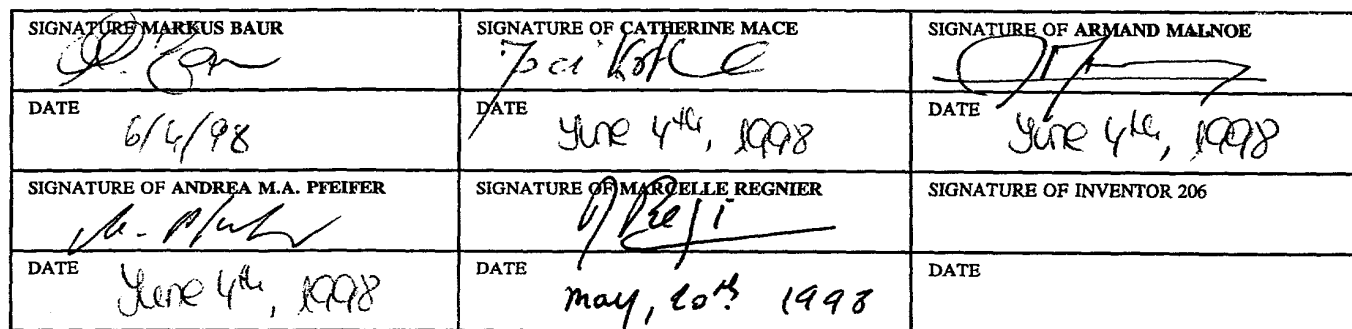 SIGNATURE MARKUS BAUR
SIGNATURE OF CATHERINE MACE
SIGNATURE OF ARMAND MALNOE
DATE
6/4/98
DATE
June 4th, 1998
DATE
June 4th, 1998
SIGNATURE OF ANDREA M.A. PFEIFER
SIGNATURE OF MARCELLE REGNIER
SIGNATURE OF INVENTOR 206
DATE
June 4th, 1998
DATE
May, 20th 1998
DATE